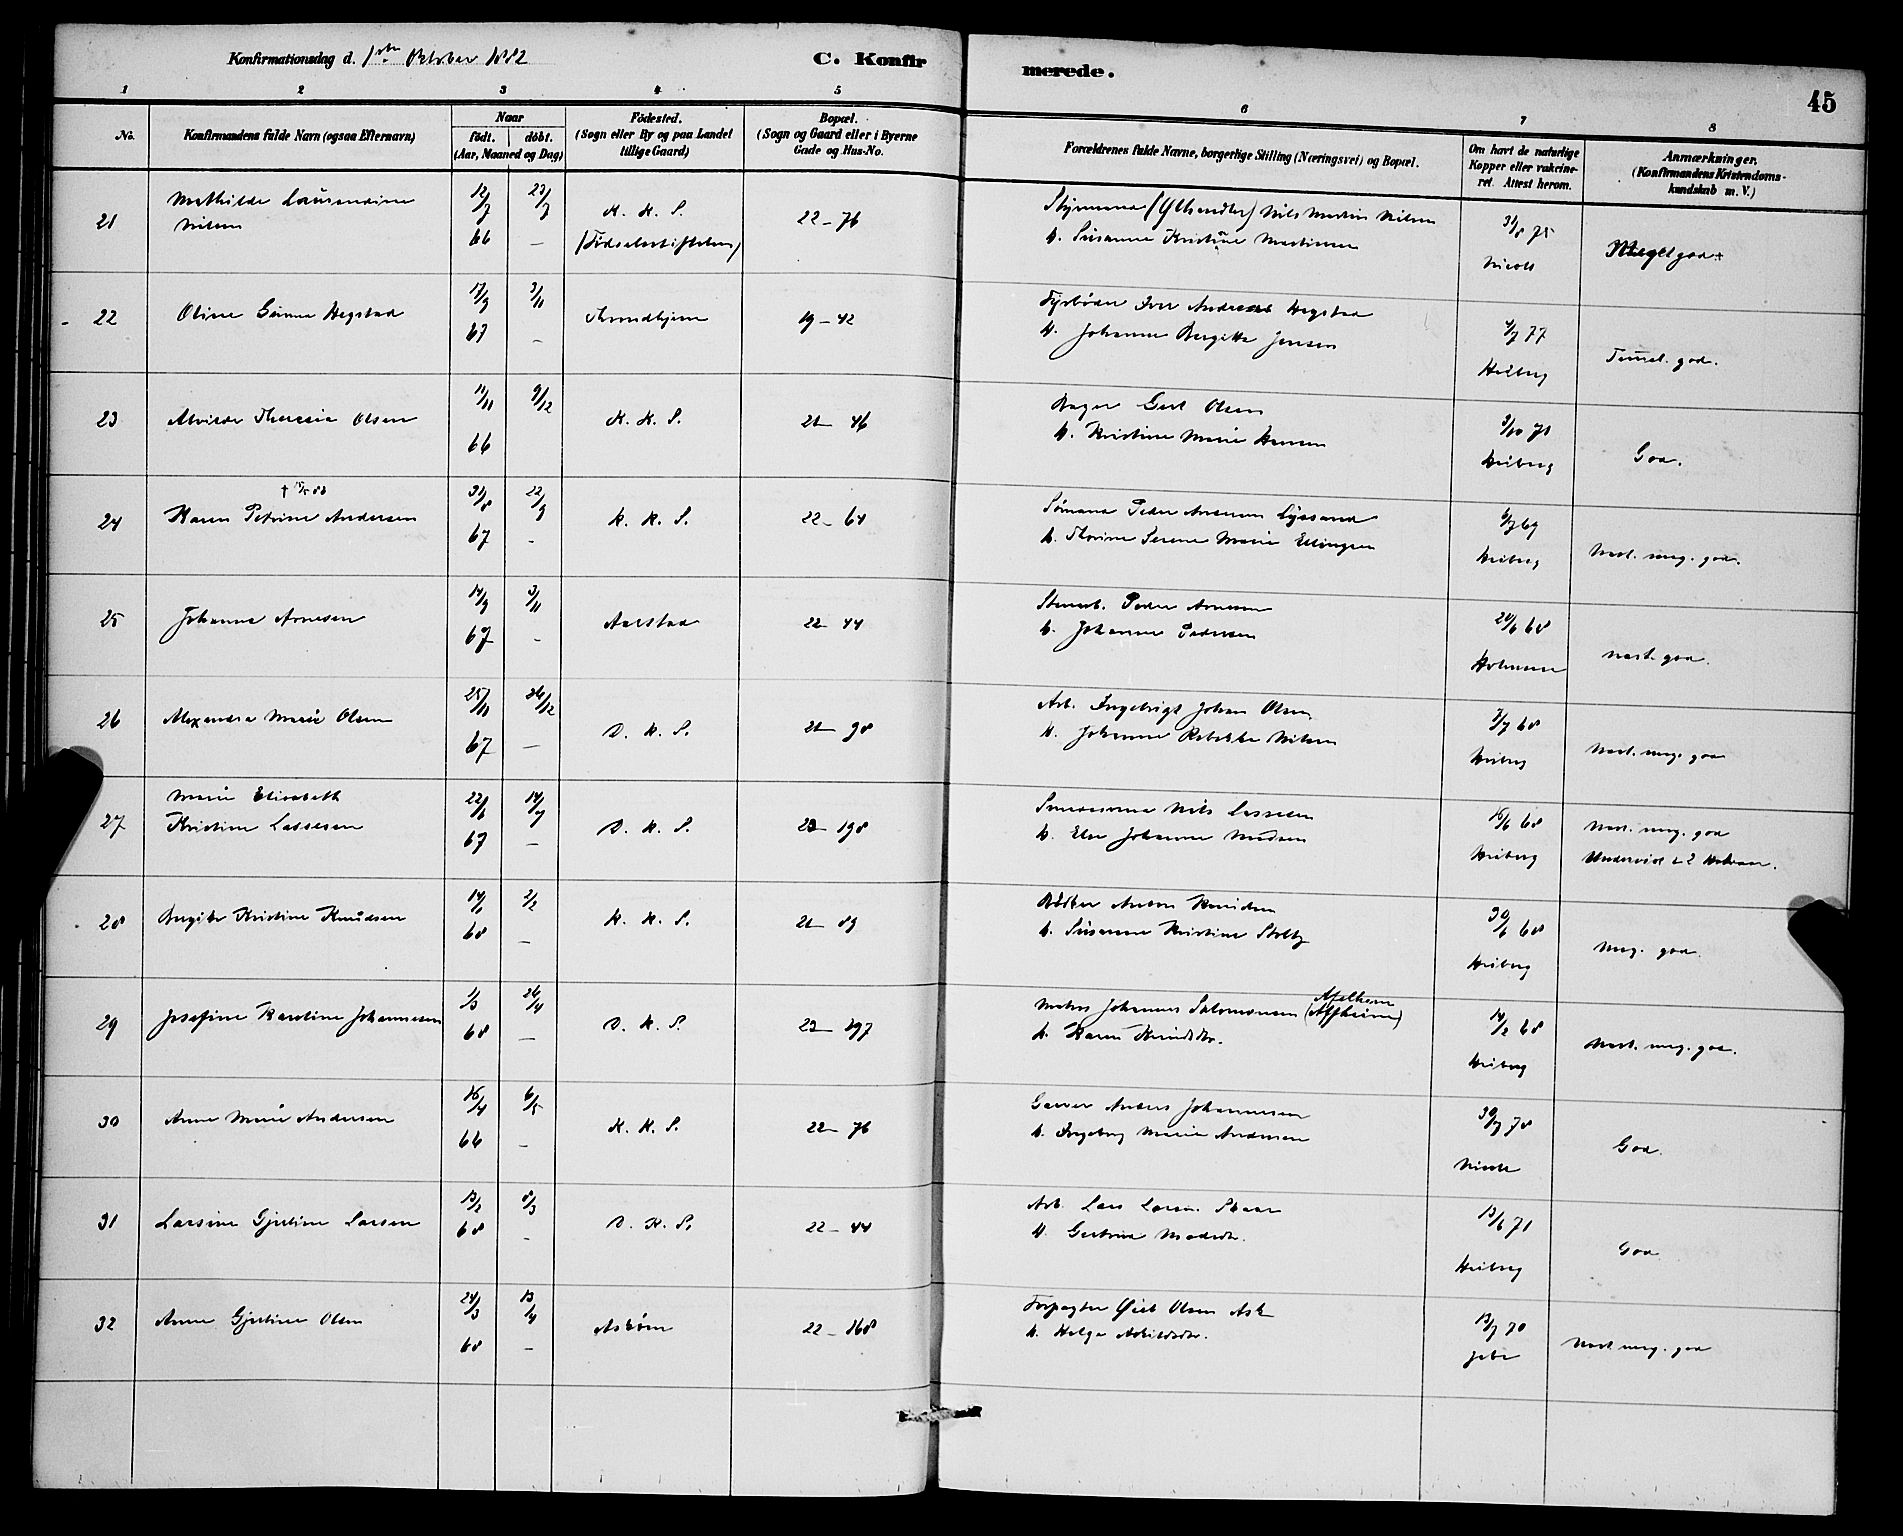 Konfirmationsdag d. 1ste Oktober 1882
C. Konfirmerede.
45
1 2 3 4 5 6 7 8
No.
Konfirmandens fulde Navn (ogsaa Efternavn)
Naar
født. døbt.
(Aar, Maaned og Dag)
Fødested.
(Sogn eller By og paa Landet
tillige Gaard)
Bopæl.
(Sogn og Gaard eller i Byerne
Gade og Hus-No.
Forældrenes fulde Navne, borgerlige Stilling (Næringsvei) og Bopæl.
Om havt de naturlige
Kopper eller vakcine-
ret. Attest herom.
Anmærkninger.
(Konfirmandens Kristendoms-
kundskab m. V.)
21 Mathilde Laurendine Nilsen 12/7 66 23/7 – K. K. S. (Fødselsstiftelsen) 22–76
Styrmand Nils Martin Nilsen
h. Susanne Kristine Martinsen
31/8 75 Nicols Meget god
22 Oline Gunna Hegstad 17/9 67 3/11 – Throndhjem 19–42
Fyrbøder Iver Andreas Hegstad
h. Johanna Bergitte Jensen
4/7 77 Heiberg Temmel. god.
23 Alvilde Theresia Olsen 11/11 66 9/12 K. K. S. 21–46
Bager Gert Olsen
h. Kristine Marie Hansen
3/10 71 Heiberg God.
24 Karen Petrine Andersen 31/8 67 22/9 – K. K. S. 22–64
Sømand Peder Andersen Lyssand
h. Thorine Serene Marie Ellingsen
6/7 69 Heiberg Næst. meg. god.
25 Johanna Arnesen 14/9 67 3/11 – Aarstad 22–44
Stenarb. Peder Arnesen
h. Johanne Pedersen
20/6 68 Holmsen næst. god.
26 Alexandra Marie Olsen 25/11 67 26/12 – D. K. S. 21–98
Arb. Ingebrigt Johan Olsen
h. Johanne Rebekka Nilsen
7/7 68 Heiberg Næst. meg. god
27 Marie Elisabeth
Kristine Lassesen 22/6 67 14/7 – D. K. S. 23–198
Smedesvend Nils Lassesen
h. Else Johanne Madsen
16/6 68 Heiberg Næst. meg. god
28 Birgitte Kristine Knudsen 14/1 68 2/2 – K. K. S. 21–89
Bødker Anton Knudsen
h. Susanne Kristine Stoltz
30/6 68 Heiberg Meg. god.
29 Josefine Karoline Johannesen 1/3 68 26/4 – D. K. S. 23–197
Matros Johannes Salomonsen (Affheim)
h. Karen Knudsdtr.
14/2 68 Heiberg Næst. meg. god.
30 Anne Marie Andersen 16/4 66 6/5 – K. K. S. 22–76
Garver Anders Johannesen
h. Ingeborg Marie Andersen
30/7 78 Nicols God.
31 Larsine Gjertine Larsen 13/2 68 8/3 – D. K. S. 22–44
Arb. Lars Larsen Skaar
h. Gertrud Madsdtr.
13/6 71 Heiberg God
32 Anne Gjertine Olsen 24/3 68 13/4 – Askøen 22–168
Forpagter Olsen Ask
h. Helga
13/7 70 Næst. meg. god